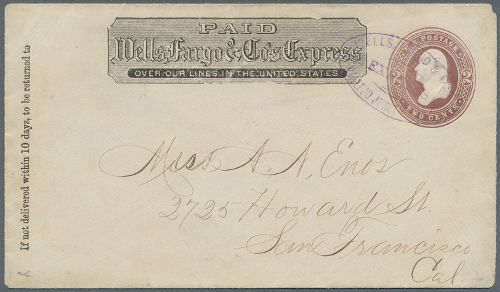 PAID
Wells, Fargo & Co's Express
OVER OUR LINES IN THE UNITED STATES
WELLS
EX
U.S. POSTAGE
TWO CENTS
2 2
If not delivered within 10 days, to be returned to
Miss A. N. Enos
2725 Howard St.
San Francisco
Cal.